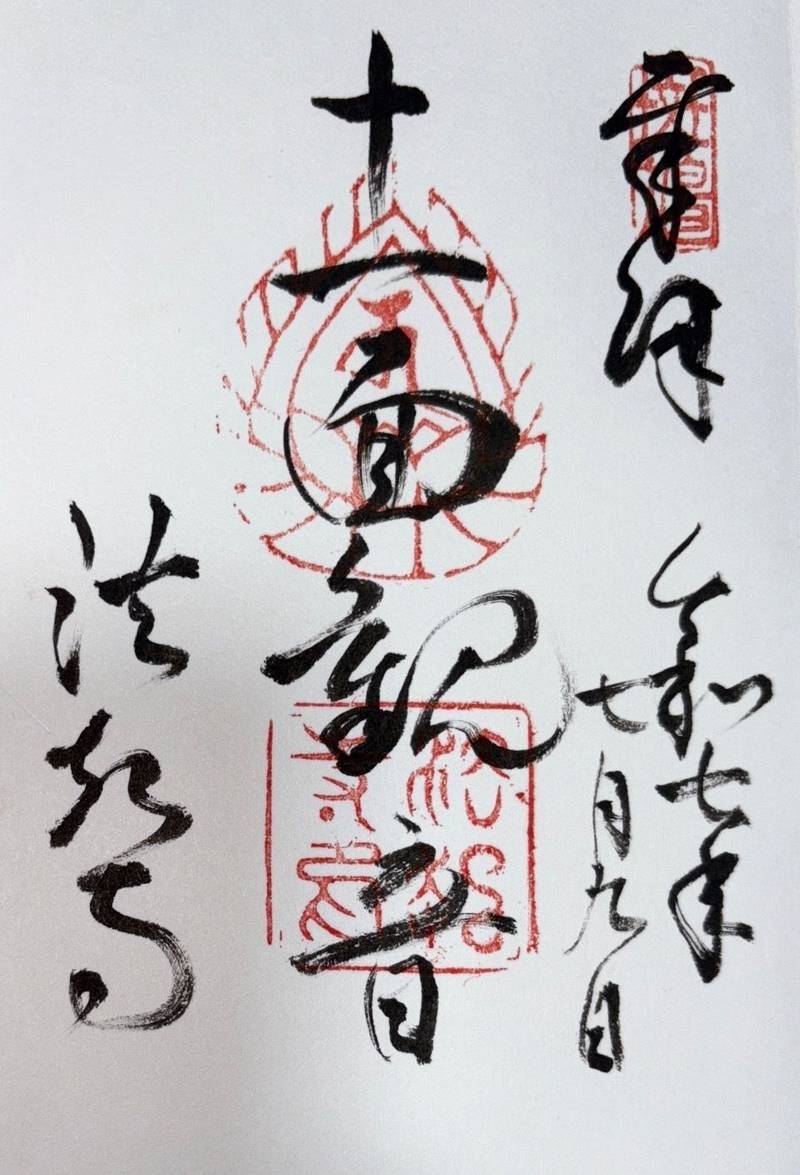 奉拝
令和七年
七月九日
十一面観音
法起寺